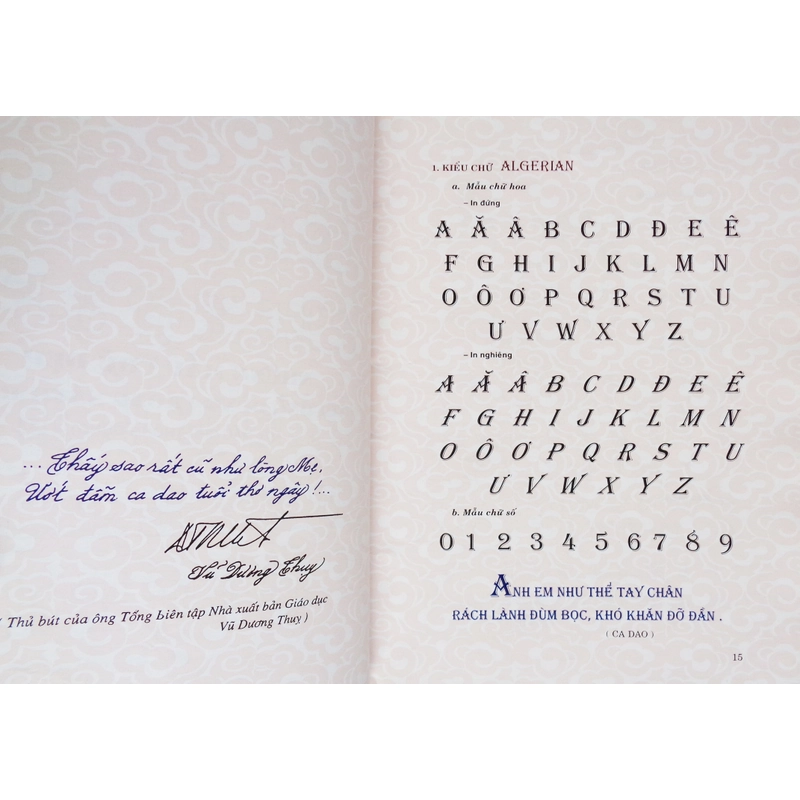 ... Thấy sao rất cũ như lòng Mẹ,
Ướt đẫm ca dao tuổi thơ ngây !...
Vũ Dương Thụy
( Thủ bút của ông Tổng biên tập Nhà xuất bản Giáo dục
Vũ Dương Thụy )
1. KIỂU CHỮ ALGERIAN
a. Mẫu chữ hoa
– In đứng
A Ă Â B C D Đ E Ê
F G H I J K L M N
O Ô Ơ P Q R S T U
Ư V W X Y Z
– In nghiêng
A Ă Â B C D Đ E Ê
F G H I J K L M N
O Ô Ơ P Q R S T U
Ư V W X Y Z
b. Mẫu chữ số
0 1 2 3 4 5 6 7 8 9
ANH EM NHƯ THỂ TAY CHÂN
RÁCH LÀNH ĐÙM BỌC, KHÓ KHĂN ĐỠ ĐẦN .
( CA DAO )
15